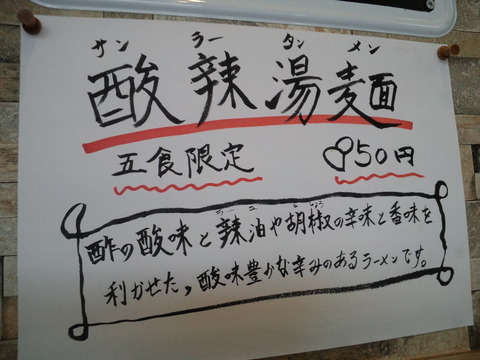 サン ラー タン メン
酸辣湯麺
五食限定 850円
ラーユ こしょう
酢の酸味と辣油や胡椒の辛味と香味を
利かせた、酸味豊かな辛みのあるラーメンです。